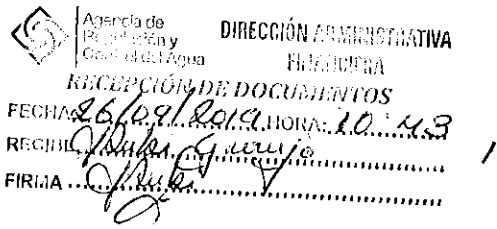 Agencia de
Regulación y
Control del Agua
DIRECCIÓN ADMINISTRATIVA
FINANCIERA
RECEPCIÓN DE DOCUMENTOS
FECHA 26/09/2019 HORA: 10:43
RECIBE
FIRMA